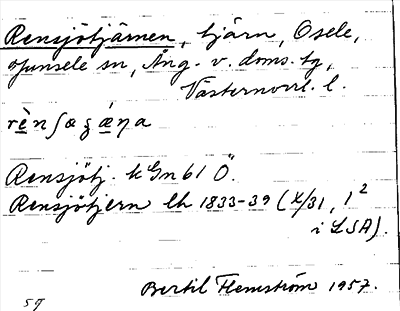 Rensjötjärnen, tjärn, Osele,
Junsele sn, Ång. v. doms. tg,
Västernorrl. l.
rèn∫œʒǽŋa
Rensjötj. k Gn 61 Ö.
Rensjötjern lh 1833-39 (X/31, 1²
i LSA).
Bertil Flemström 1957.